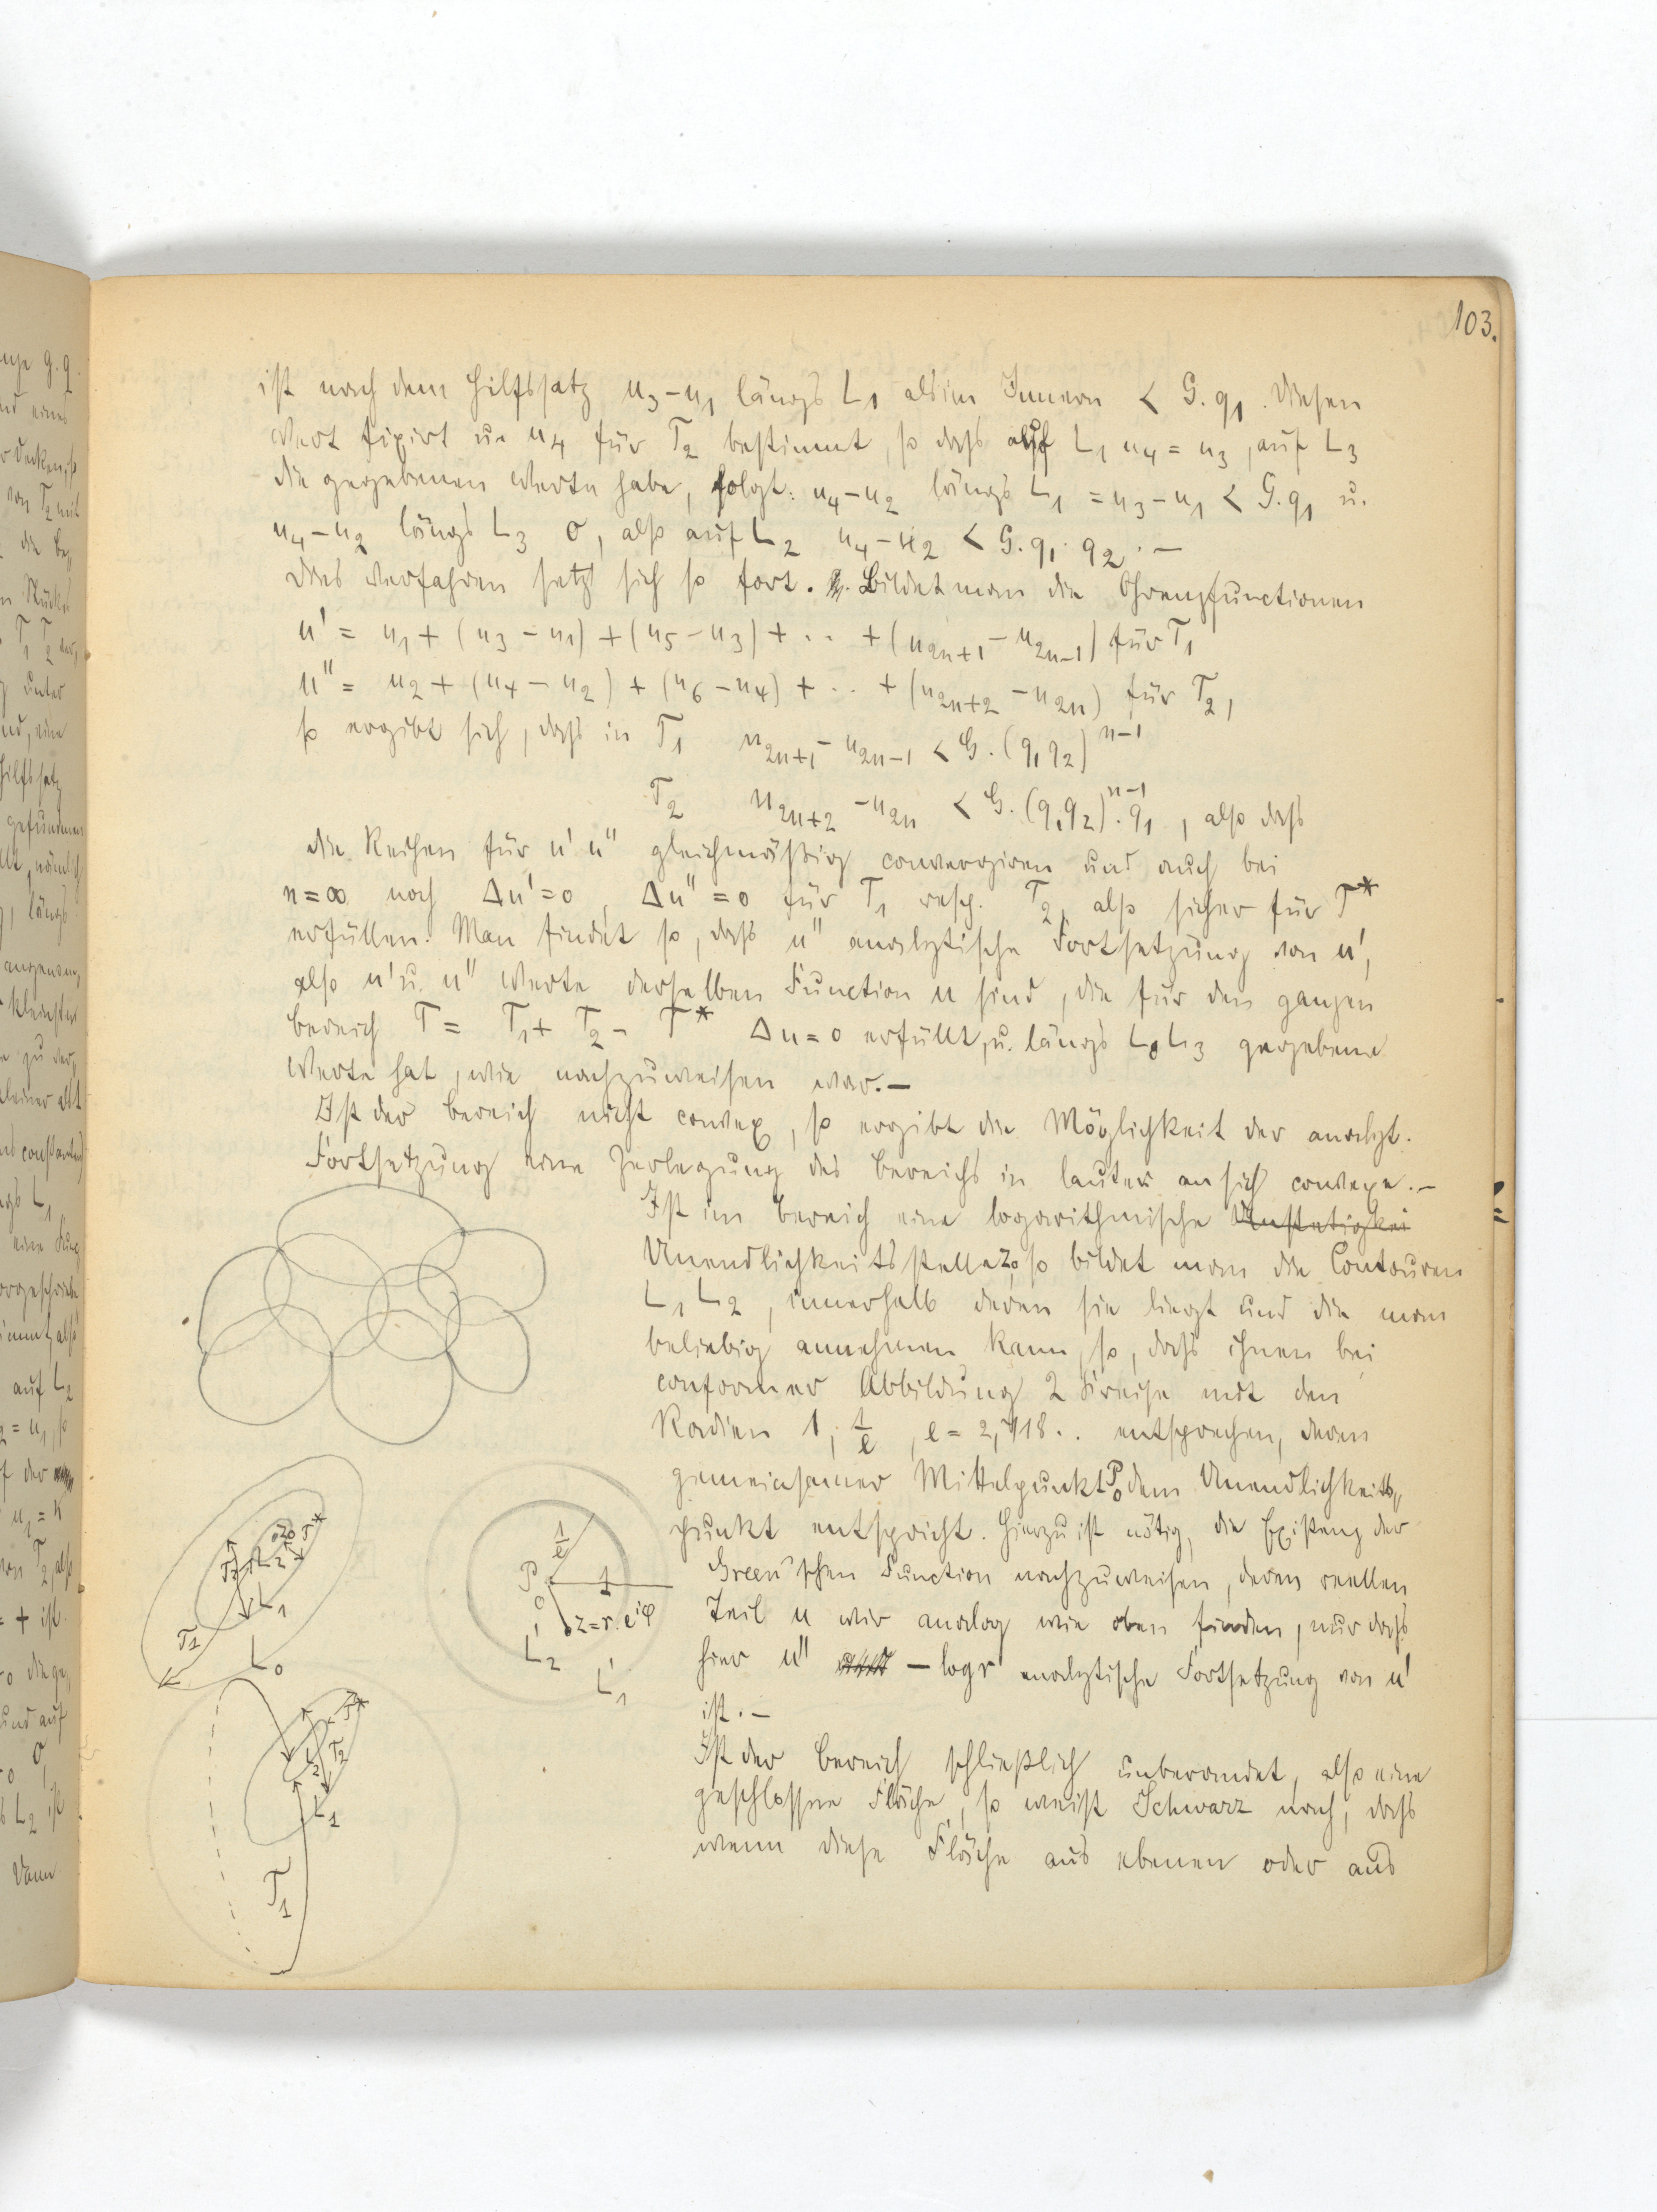 103.
ist nach dem Hilfssatz u₃-u₁ längs L₁ als im Innern < G.q₁. Diesen
Wert fixirt u. u₄ für T₂ bestimmt, so dass auf L₁ u₄ = u₃, auf L₃
die gegebenen Werte habe, folgt: u₄-u₂ längs L₁ = u₃-u₁ < G.q₁ u.
u₄-u₂ längs L₃ 0, also auf L₂ u₄-u₂ < G.q₁.q₂.-
Das Verfahren setzt sich so fort. Bildet man die Grenzfunctionen
u' = u₁ + (u₃-u₁) + (u₅-u₃) + .. + (u₂ₙ₊₁ - u₂ₙ₋₁) für T₁
u'' = u₂ + (u₄-u₂) + (u₆-u₄) + .. + (u₂ₙ₊₂ - u₂ₙ) für T₂,
so ergibt sich, dass in T₁ u₂ₙ₊₁ - u₂ₙ₋₁ < G.(q₁q₂)ⁿ⁻¹
T₂ u₂ₙ₊₂ - u₂ₙ < G.(q₁q₂)ⁿ⁻¹.q₁, also dass
die Reihen für u' u'' gleichmäßig convergiren und auch bei
n=∞ noch Δu'=0, Δu''=0 für T₁ resp. T₂, also sicher für T*
erfüllen. Man findet so, dass u'' analytische Fortsetzung von u',
also u' u. u'' Werte derselben Function u sind, die für den ganzen
Bereich T = T₁ + T₂ - T* Δu=0 erfüllt, u. längs L₀ L₃ gegebene
Werte hat, wie nachzuweisen war.-
Ist der Bereich nicht convex, so ergibt die Möglichkeit der analyt.
Fortsetzung eine Zerlegung des Bereichs in lauter an sich convexe.-
Ist im Bereich eine logarithmische Unstetigkei
Unendlichkeitsstelle z₀, so bildet man die Contouren
L₁ L₂, innerhalb deren sie liegt und die man
beliebig annehmen kann, so, dass ihnen bei
conformer Abbildung 2 Kreise mit den
Radien 1, 1/e, e = 2,718.. entsprechen, deren
gemeinsamer Mittelpunkt P₀ dem Unendlichkeits„
punkt entspricht. Hierzu ist nötig, die Existenz der
Green'schen Function nachzuweisen, deren reellen
Teil u wir analog wie oben finden, nur dass
hier u'' - log r analytische Fortsetzung von u'
ist.-
Ist der Bereich schließlich unberandet, also eine
geschlossne Fläche, so weist Schwarz nach, dass
wenn diese Fläche aus ebenen oder aus
z₀
T*
T₂
L₂
L₁
T₁
L₀
1/e
P₀
1
z=r.e^iφ
L₂'
L₁'
T*
T₂
L₂
L₁
T₁